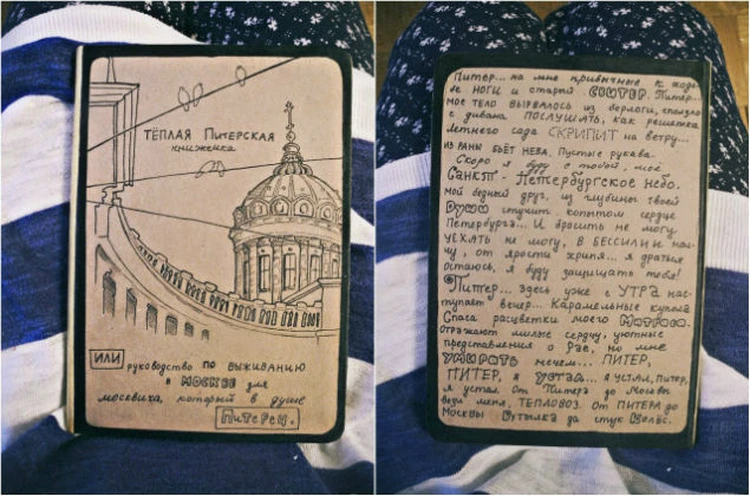 ТЁПЛАЯ Питерская
книжечка
ИЛИ руководство по выживанию
в МОСКВЕ для
москвиха, который в душе
ПиТеРец.
Питер... на мне привычные к ходь-
бе НОГИ и старый СВИТЕР. Питер...
моё ТЕЛО ВЫРВАЛОСЬ из берлоги, сползло
с дивана ПОСЛУШАТЬ, как решетка
Летнего сада СКРИПИТ на ветру...
ИЗ РАНЫ БЬЁТ НЕВА. Пустые рукава.
Скоро я буду с тобой, моё
САНКТ-Петербургское небо.
мой бедный друг, из глубины твоей
Души стучит копытом сердце
Петербурга... И бросить не могу
УЕХАТЬ не могу, В БЕССИЛИИ мы-
чу, от ярости хрипя... я драться
остаюсь, я буду защищать тебя!
Питер... здесь уже с УТРА нас-
тупает вечер... Карамельные купола
Спаса расцветки моего Матраса.
отражают милые сердцу, уютные
представления о Рае, но мне
УМИРАТЬ нечем... ПИТЕР,
ПИТЕР, я устал... я УСТАЛ, Питер,
я устал. От Питера до Москвы
вези меня, ТЕПЛОВОЗ. От ПИТЕРА до
Москвы Бутылка да стук Колёс.